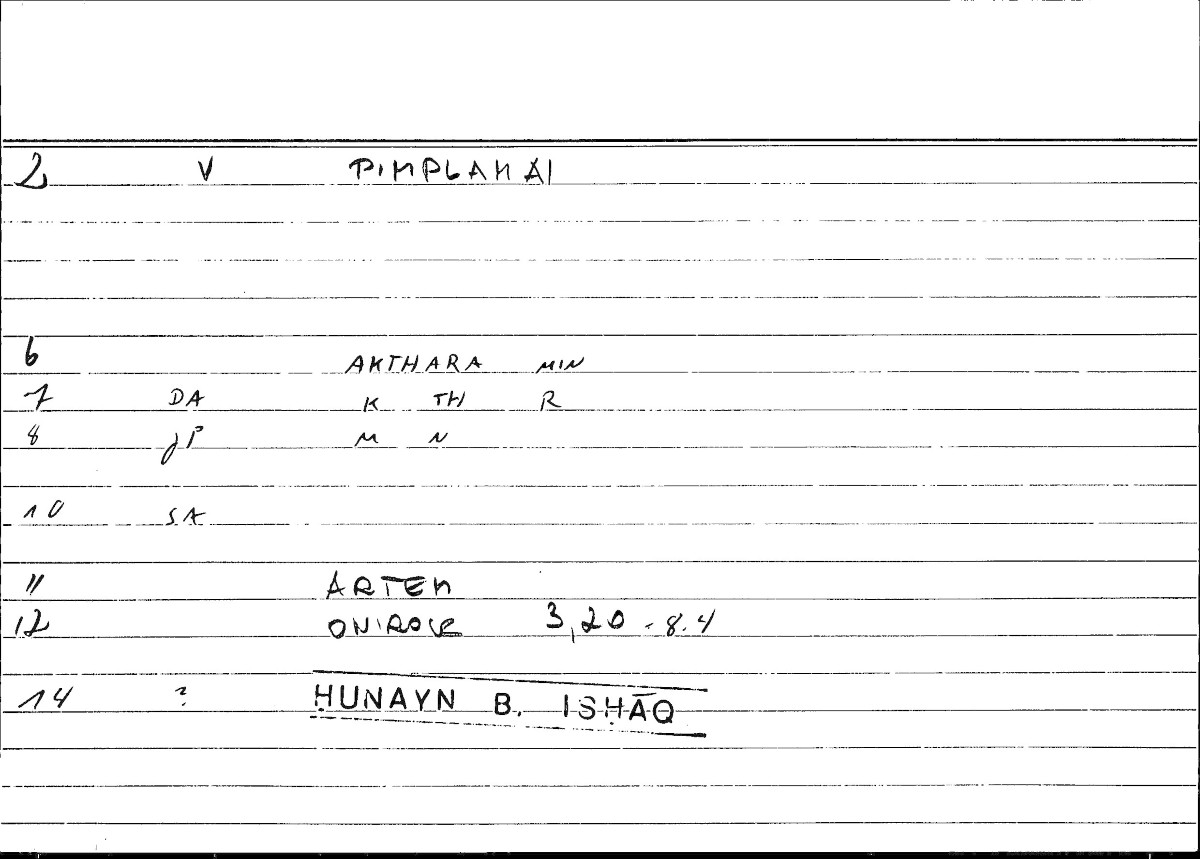 2 V PIMPLAMAI
6 AKTHARA MIN
7 DA K TH R
8 JP M N
10 SA
11 ARTEM
12 ONIROCR 3,20 - 8.4
14 ? ḤUNAYN B. ISḤĀQ